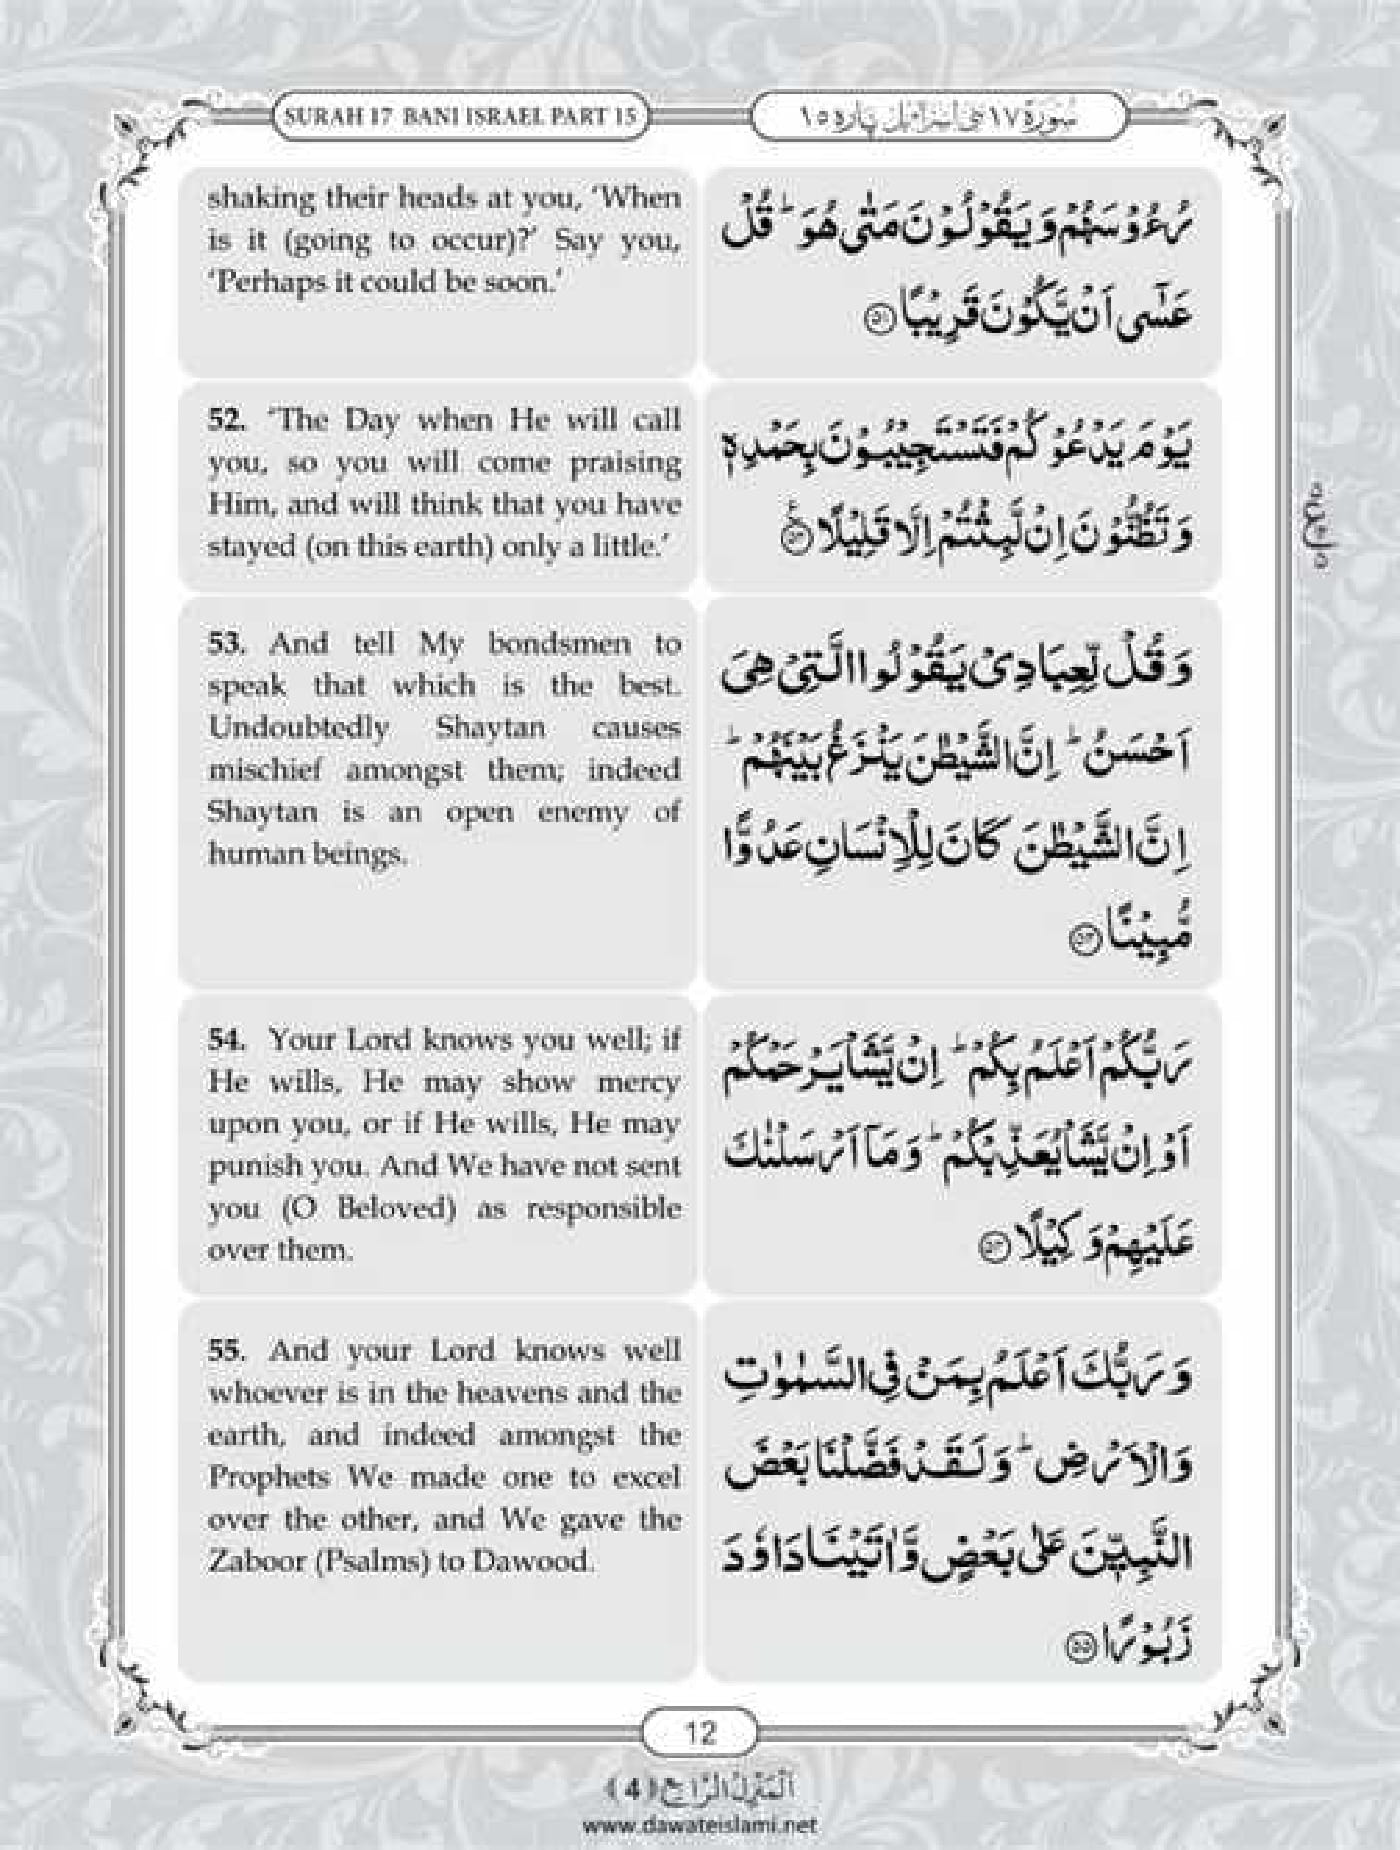 SURAH 17 BANI ISRAEL PART 15
سُورَة ١٧ بنی اسرائیل پارہ ١٥
shaking their heads at you, ‘When
is it (going to occur)?’ Say you,
‘Perhaps it could be soon.’
رُءُوْسَهُمْ وَ یَقُوْلُوْنَ مَتٰی هُوَ ؕ قُلْ
عَسٰۤی اَنْ یَّكُوْنَ قَرِیْبًا ﴿۵۱﴾
52. ‘The Day when He will call
you, so you will come praising
Him, and will think that you have
stayed (on this earth) only a little.’
یَوْمَ یَدْعُوْكُمْ فَتَسْتَجِیْبُوْنَ بِحَمْدِهٖ
وَ تَظُنُّوْنَ اِنْ لَّبِثْتُمْ اِلَّا قَلِیْلًا ﴿۵۲﴾
53. And tell My bondsmen to
speak that which is the best.
Undoubtedly Shaytan causes
mischief amongst them; indeed
Shaytan is an open enemy of
human beings.
وَ قُلْ لِّعِبَادِیْ یَقُوْلُوا الَّتِیْ هِیَ
اَحْسَنُ ؕ اِنَّ الشَّیْطٰنَ یَنْزَغُ بَیْنَهُمْ ؕ
اِنَّ الشَّیْطٰنَ كَانَ لِلْاِنْسَانِ عَدُوًّا
مُّبِیْنًا ﴿۵۳﴾
54. Your Lord knows you well; if
He wills, He may show mercy
upon you, or if He wills, He may
punish you. And We have not sent
you (O Beloved) as responsible
over them.
رَبُّكُمْ اَعْلَمُ بِكُمْ ؕ اِنْ یَّشَاْ یَرْحَمْكُمْ
اَوْ اِنْ یَّشَاْ یُعَذِّبْكُمْ ؕ وَ مَاۤ اَرْسَلْنٰكَ
عَلَیْهِمْ وَكِیْلًا ﴿۵۴﴾
55. And your Lord knows well
whoever is in the heavens and the
earth, and indeed amongst the
Prophets We made one to excel
over the other, and We gave the
Zaboor (Psalms) to Dawood.
وَ رَبُّكَ اَعْلَمُ بِمَنْ فِی السَّمٰوٰتِ
وَ الْاَرْضِ ؕ وَ لَقَدْ فَضَّلْنَا بَعْضَ
النَّبِیّٖنَ عَلٰی بَعْضٍ وَّ اٰتَیْنَا دَاوٗدَ
زَبُوْرًا ﴿۵۵﴾
12
اَلْمَنْزِلُ الرَّابِع ﴿4﴾
www.dawateislami.net